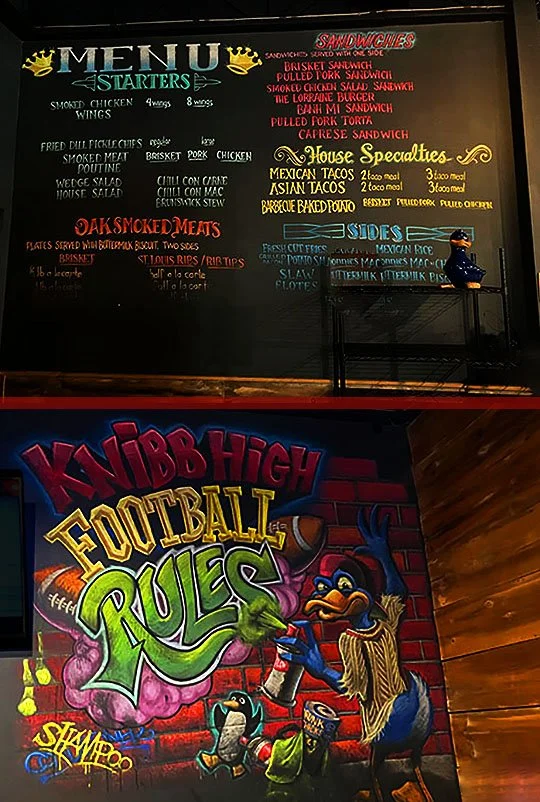 MENU
STARTERS
SMOKED CHICKEN WINGS 4wings 8 wings
FRIED DILL PICKLE CHIPS regular large
SMOKED MEAT POUTINE BRISKET PORK CHICKEN
WEDGE SALAD
HOUSE SALAD
CHILI CON CARNE
CHILI CON MAC
BRUNSWICK STEW
OAK SMOKED MEATS
PLATES SERVED WITH BUTTERMILK BISCUIT, TWO SIDES
BRISKET
ST. LOUIS RIBS / RIB TIPS
half a la carte
SANDWICHES
SANDWICHES SERVED WITH ONE SIDE
BRISKET SANDWICH
PULLED PORK SANDWICH
SMOKED CHICKEN SALAD SANDWICH
THE LORRAINE BURGER
BANH MI SANDWICH
PULLED PORK TORTA
CAPRESE SANDWICH
House Specialties
MEXICAN TACOS 2 taco meal 3 taco meal
ASIAN TACOS 2 taco meal 3 taco meal
BARBECUE BAKED POTATO BRISKET PULLED PORK PULLED CHICKEN
SIDES
FRESH CUT FRIES MEXICAN RICE
POTATO
SLAW
ELOTES
KNIBB HIGH
FOOTBALL
RULES
SHAMPOO